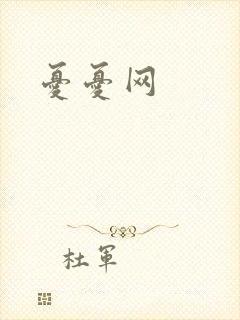 憂憂网
杜軍